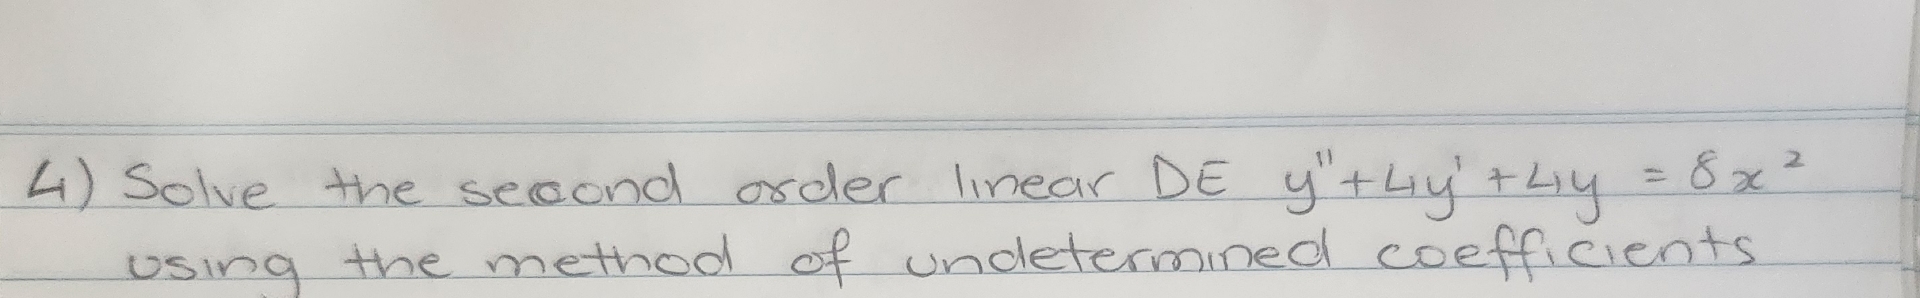 4) Solve the second order linear DE y'' + 4y' + 4y = 8x²
using the method of undetermined coefficients